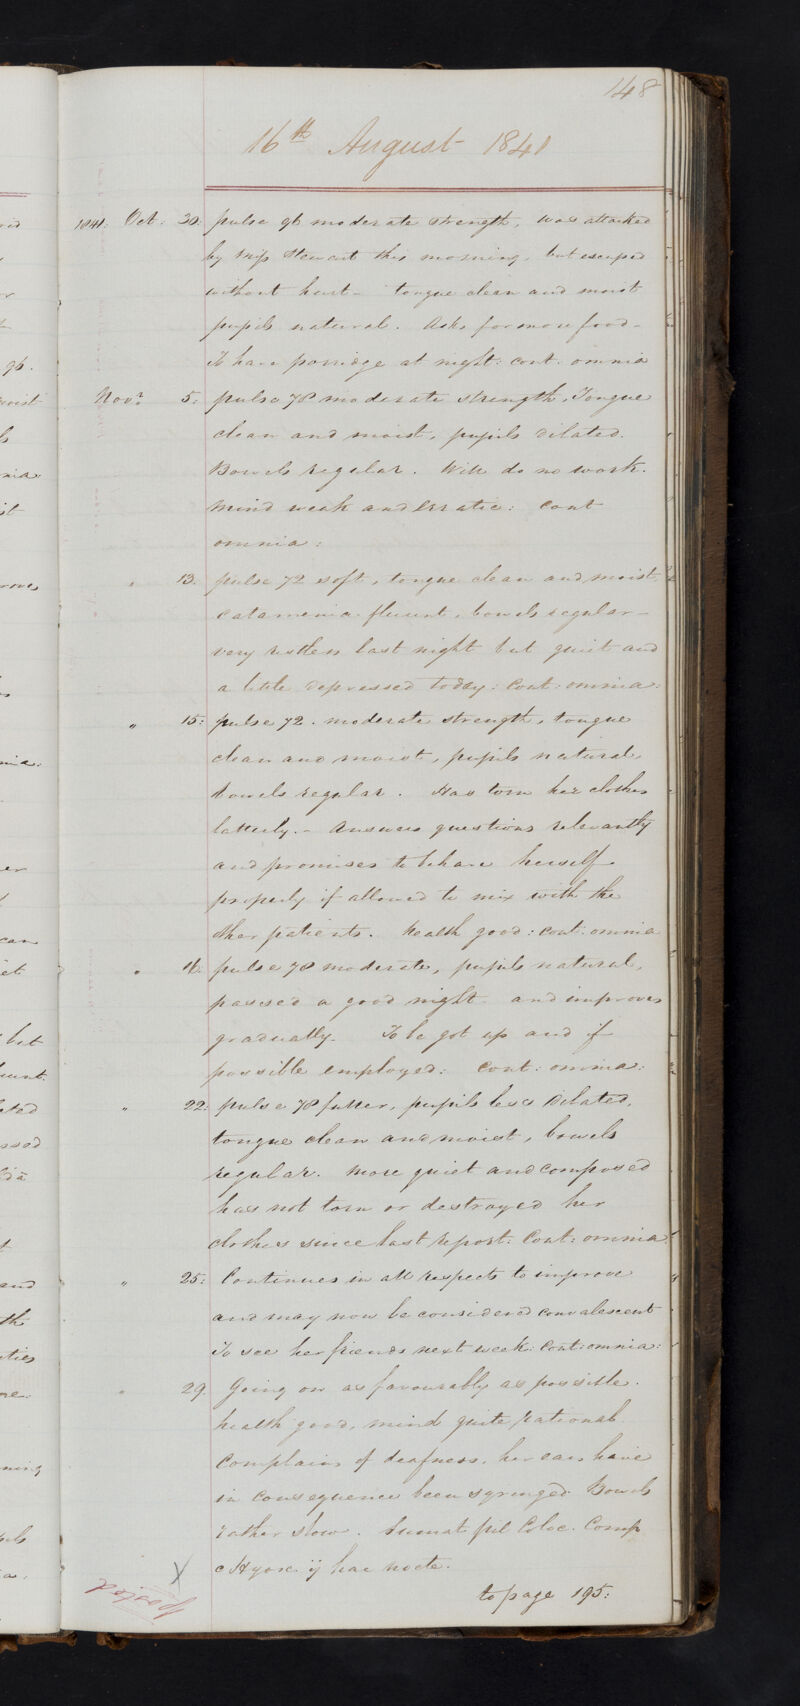 148
16th August 1841
1841: Oct: 30: pulse 96 moderate strength, was attacked
by Miss Stewart this morning, but escaped
without hurt - tongue clean and moist
pupils natural. Asks for more food -
To have porridge at night: cont: omnia
Novr 5: pulse 78 moderate strength, Tongue
clean and moist, pupils dilated.
Bowels regular. Will do no work.
Mind weak and erratic: Cont
omnia:
" 13. pulse 72 soft, tongue clean and moist
catamenia fluent, bowels regular -
very restless last night but quiet and
a little depressed today: Cont: omnia:
" 15: pulse 72. moderate strength, tongue
clean and moist, pupils natural,
bowels regular. Has torn her clothes
latterly. - Answers questions relevantly
and promises to behave herself
properly if allowed to mix with the
other patients. Health good: cont: omnia
" 16. pulse 78 moderate, pupils natural,
passed a good night and improves
gradually. To be got up and if
possible employed: Cont: omnia:
" 22: pulse 78 fuller, pupils less dilated,
tongue clean and moist, bowels
regular. More quiet and composed
has not torn or destroyed her
clothes since last report: Cont: omnia
" 25: Continues in all respects to improve
and may now be considered convalescent
To see her friends next week: Cont: omnia:
" 29. Going on as favourably as possible.
health good, mind quite rational
Complains of deafness, her ears have
in consequence been syringed. Bowels
rather slow. Sumat pil Coloc. Comp
c Hyosc ij hac nocte.
to page 195:
X
Posted